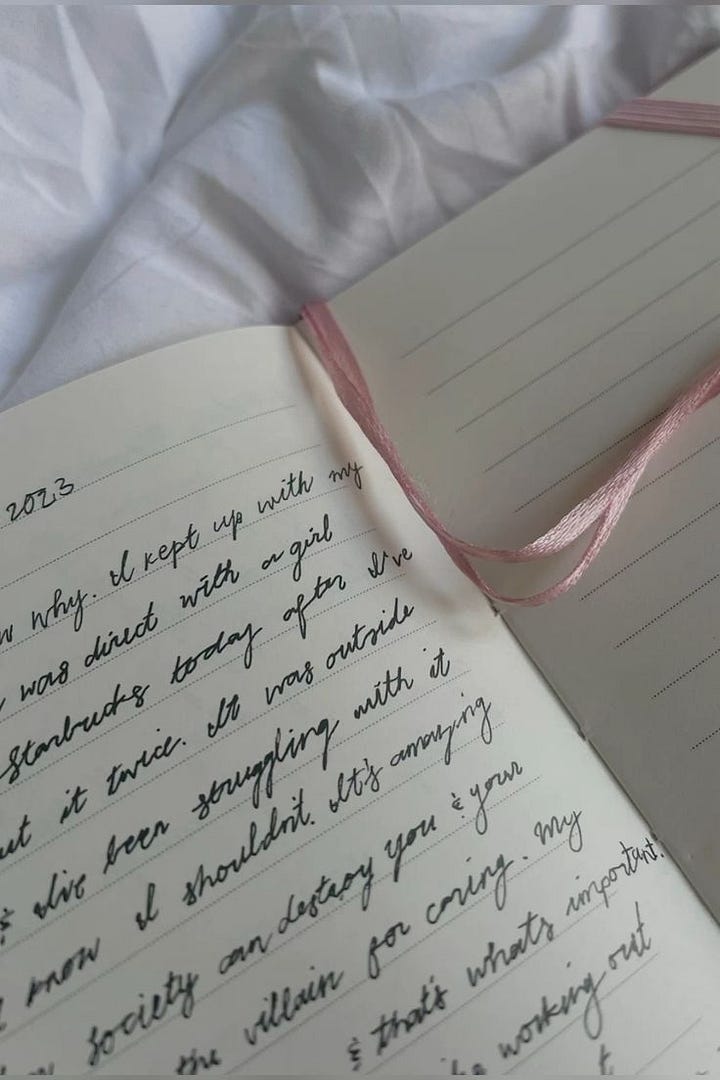 2023
why. I kept up with my
was direct with a girl
Starbucks today after I've
it twice. It was outside
& I've been struggling with it
I know I shouldn't. It's amazing
society can destroy you & your
the villain for caring. My
& that's what's important.
working out